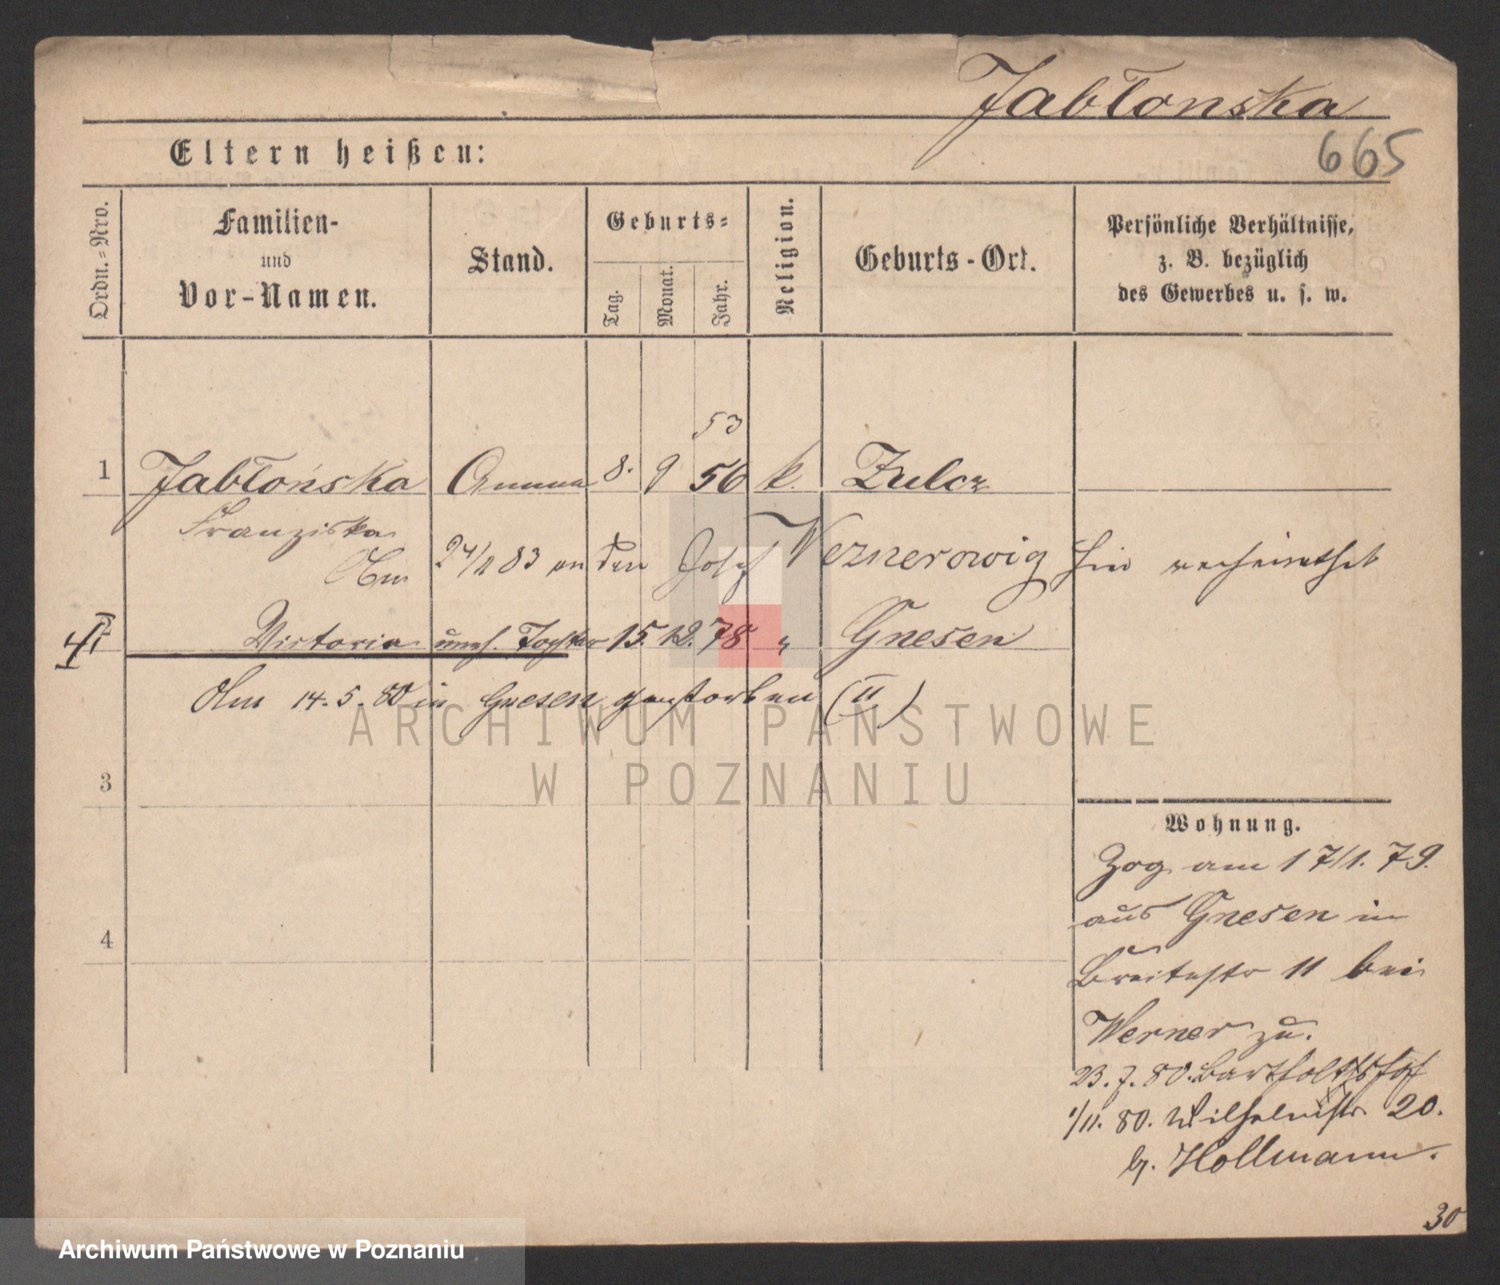 Jabłonska
665
Eltern heißen:
Ordn.-Nro.
Familien-
und
Vor-Namen.
Stand.
Geburts-
Tag.
Monat.
Jahr.
Religion.
Geburts-Ort.
Persönliche Verhältnisse,
z. B. bezüglich
des Gewerbes u. s. w.
53
1 Jabłońska Amme 8. 9 56 k. Zulcz
Franziska
Am 24/11 83 an den Josef Weznerowig hier verheirathet
II Victoria uneh. Tochter 15. 12. 78 " Gnesen
Am 14. 5. 80 in Gnesen gestorben (II)
ARCHIWUM PAŃSTWOWE
W POZNANIU
3
4
Wohnung.
Zog am 17/1. 79.
aus Gnesen in
Breitestr 11 bei
Werner zu.
23. 7. 80.
1/11. 80. Wilhelmstr. 20.
b. Hollmann.
30
Archiwum Państwowe w Poznaniu